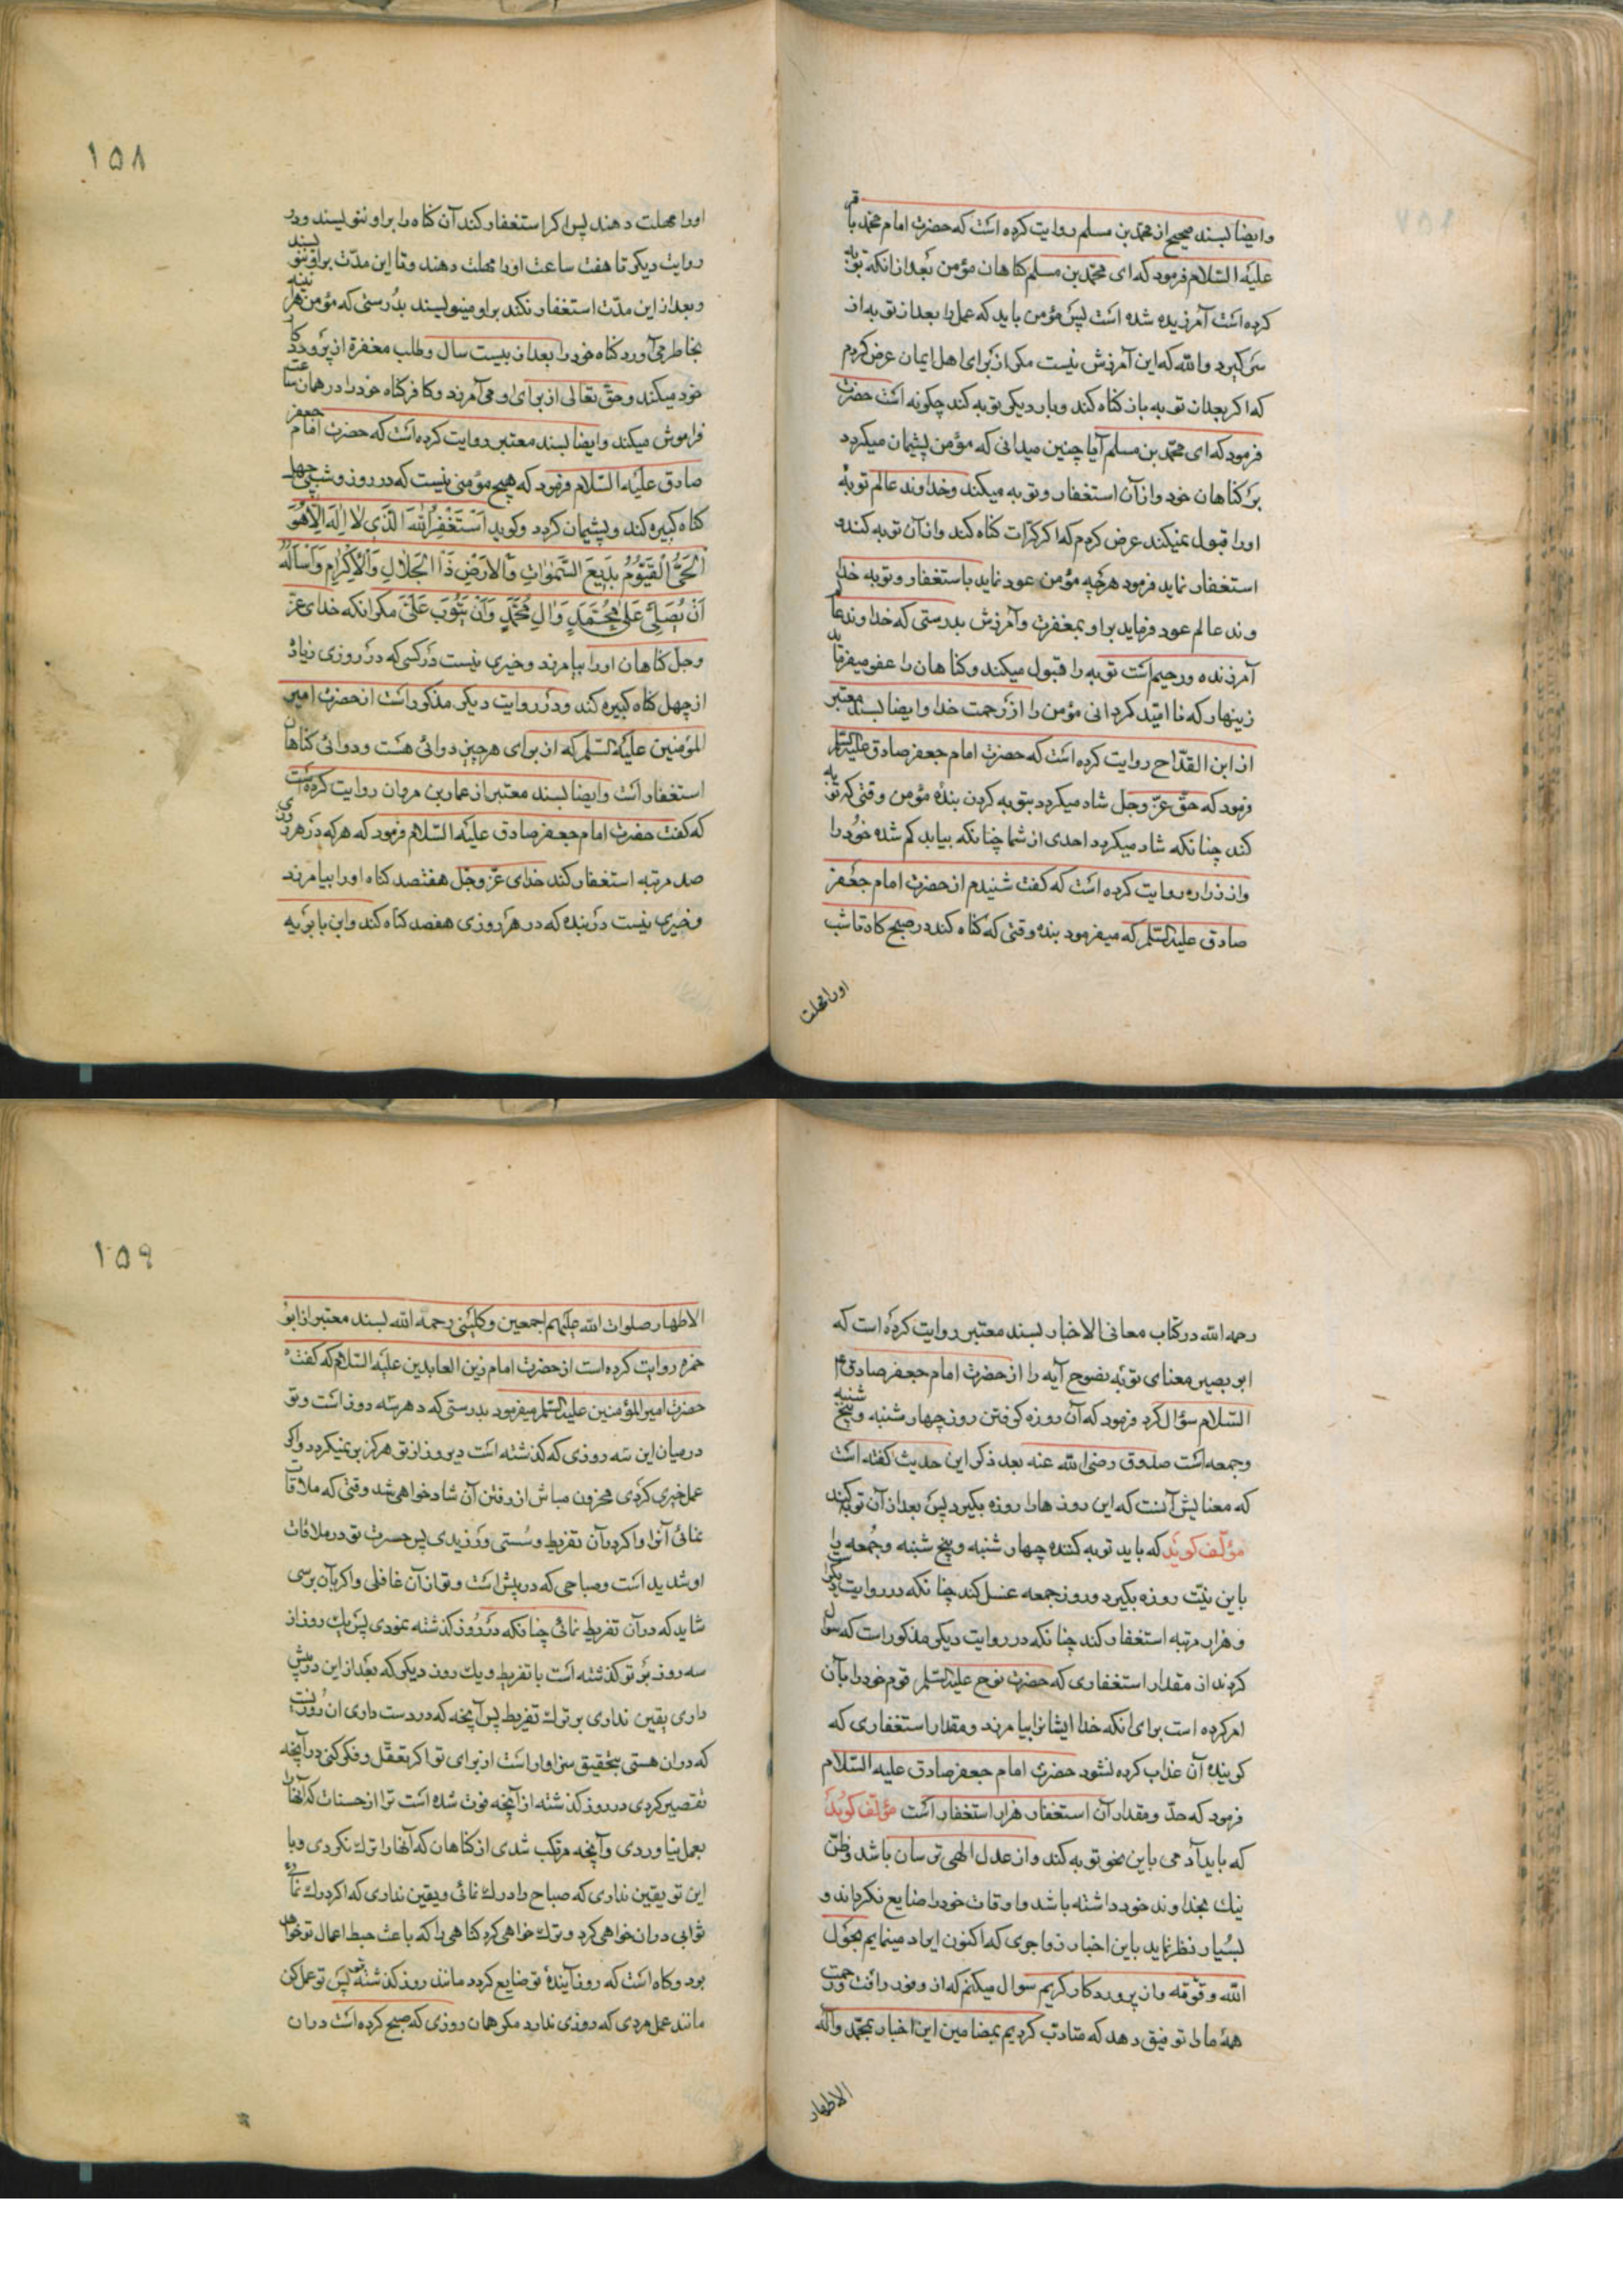 وایضا بسند صحیح از محمد بن مسلم روایت کرده است که حضرت امام محمد باقر
علیه السلام فرمود که ای محمد بن مسلم کناهان مؤمن بعد از انکه توبه
کرده است آمرزیده شده است پس مؤمن باید که عمل را بعد از توبه از
سر کیرد والله که این آمرزش نیست مکر از برای اهل ایمان عرض کردم
که اکر بعد از توبه باز کناه کند وبار دیکر توبه کند چکونه است حضرت
فرمود که ای محمد بن مسلم آیا چنین میدانی که مؤمن پشیمان میکردد
بر کناهان خود واز آن استغفار وتوبه میکند وخداوند عالم توبه
اورا قبول نمیکند عرض کردم که اکر کرات کناه کند واز آن توبه کند و
استغفار نماید فرمود هرچه مؤمن عود نماید باستغفار وتوبه خدا
وند عالم عود فرماید براو بمغفرت وآمرزش بدرستی که خداوند عا
آمرزنده ورحیم است توبه را قبول میکند وکناهان را عفو میفرماید
زینهار که ناامید کردانی مؤمن را از رحمت خدا وایضا بسند معتبر
از ابن القداح روایت کرده است که حضرت امام جعفر صادق علیه السلم
فرمود که حق عز وجل شاد میکردد بتوبه کردن بنده مؤمن وقتی که توبه
کند چنانکه شاد میکردد احدی از شما چنانکه بیابد کم شده خود را
واز زراره روایت کرده است که کفت شنیدم از حضرت امام جعفر
صادق علیه السلم که میفرمود بنده وقتی که کناه کند در صبح کاه تا شب
اورا مهلت
۱۵۸
اورا مهلت دهند پس اکر استغفار کند آن کناه را براو ننویسند ودر
روایت دیکر تا هفت ساعت اورا مهلت دهند وتا این مدت براو ننویسند
وبعد از این مدت استغفار نکند براو مینویسند بدرستی که مؤمن هر آینه
بخاطر می آورد کناه خود را بعد از بیست سال وطلب مغفرة از پروردکا
خود میکند وحق تعالی از برای او می آمرزد وکافر کناه خود را در همان ساعت
فراموش میکند وایضا بسند معتبر روایت کرده است که حضرت امام جعفر
صادق علیه السلام فرمود که هیچ مؤمنی نیست که در روز وشبی چهل
کناه کبیره کند وپشیمان کردد وکوید اَسْتَغْفِرُ اللهَ الَّذی لا اِلهَ اِلّا هُوَ
اَلْحَیُّ الْقَیُّومُ بَدیعَ السَّمواتِ وَالْاَرْضِ ذَا الْجَلالِ وَالْاِکْرامِ وَاَسْاَلُهُ
اَنْ یُصَلِّیَ عَلی مُحَمَّدٍ وَالِ مُحَمَّدٍ وَاَنْ یَتُوبَ عَلَیَّ مکر انکه خدای عز
وجل کناهان اورا بیامرزد وخیری نیست در کسی که در روزی زیاد
از چهل کناه کبیره کند ودر روایت دیکر مذکور است از حضرت امیر
المؤمنین علیه السلم که از برای هر چیز دوائی هست ودوائی کناهان
استغفار است وایضا بسند معتبر از عمار بن مروان روایت کرده است
که کفت حضرت امام جعفر صادق علیه السلام فرمود که هرکه در هر روزی
صد مرتبه استغفار کند خدای عز وجل هفتصد کناه اورا بیامرزد
وخیری نیست در بنده که در هر روزی هفصد کناه کند وابن بابویه
رحمه الله در کتاب معانی الاخبار بسند معتبر روایت کرده است که
ابو بصیر معنای توبه نصوح آیه را از حضرت امام جعفر صادق
السلام سؤال کرد فرمود که آن روزه کرفتن روز چهار شنبه وپنج شنبه
وجمعه است صدوق رضی الله عنه بعد ذکر این حدیث کفته است
که معنایش آنست که این روزها را روزه بکیرد پس بعد از آن توبه کند
مؤلف کوید که باید توبه کننده چهار شنبه وپنج شنبه وجمعه را
باین نیت روزه بکیرد وروز جمعه غسل کند چنانکه در روایت دیکر
وهزار مرتبه استغفار کند چنانکه در روایت دیکر مذکور است که سوال
کردند از مقدار استغفاری که حضرت نوح علیه السلم قوم خود را بآن
امر کرده است برای انکه خدا ایشانرا بیامرزد ومقدار استغفاری که
کوینده آن عذاب کرده نشود حضرت امام جعفر صادق علیه السلام
فرمود که حد ومقدار آن استغفار هزار استغفار است مؤلف کوید
که باید آدمی باین نحو توبه کند واز عدل الهی ترسان باشد وظن
نیک بخداوند خود داشته باشد واوقات خود را ضایع نکرداند و
بسیار نظر نماید باین اخبار زواجری که اکنون ایراد مینمایم بحول
الله وقوته واز پروردکار کریم سوال میکنم که از وفور رافت ورحمت
همه مارا توفیق دهد که متادب کردیم بمضامین این اخبار بمحمد وآله
الاطهار
۱۵۹
الاطهار صلوات الله علیهم اجمعین وکلینی رحمه الله بسند معتبر از ابو
حمزه روایت کرده است از حضرت امام زین العابدین علیه السلام که کفت
حضرت امیر المؤمنین علیه السلم میفرمود بدرستی که دهر سه روز است وتو
در میان این سه روزی که کذشته است دیروز از تو هرکز بر نمیکردد واکر
عمل خیری کردی محزون مباش از رفتن آن شاد خواهی شد وقتی که ملاقات
نمائی آنرا واکر در آن تفریط وسستی ورزیدی پس حسرت تو در ملاقات
او شدید است وصباحی که در پیش است وتو از آن غافلی واکر بآن برسی
شاید که در آن تفریط نمائی چنانکه در روز کذشته نمودی پس یک روز از
سه روز بر تو کذشته است با تفریط ویک روز دیکر که بعد از این در پیش
داری یقین نداری بر ترک تفریط پس آنچه که در دست داری ان روزیست
که در ان هستی بتحقیق سزاوار است از برای تو اکر تعقل وفکر کنی در آنچه
تقصیر کردی در روز کذشته از آنچه فوت شده است ترا از حسنات که آنها را
بعمل نیاوردی وآنچه مرتکب شدی از کناهان که آنها را ترک نکردی وبا
این تو یقین نداری که صباح را درک نمائی ویقین نداری که اکر درک نمائی
ثوابی در ان خواهی کرد وترک خواهی کرد کناهی را که باعث حبط اعمال تو خواهد
بود وکاه است که روز آینده تو ضایع کردد مانند روز کذشته تو پس تو عمل کن
مانند عمل مردی که روزی ندارد مکر همان روزی که صبح کرده است در ان